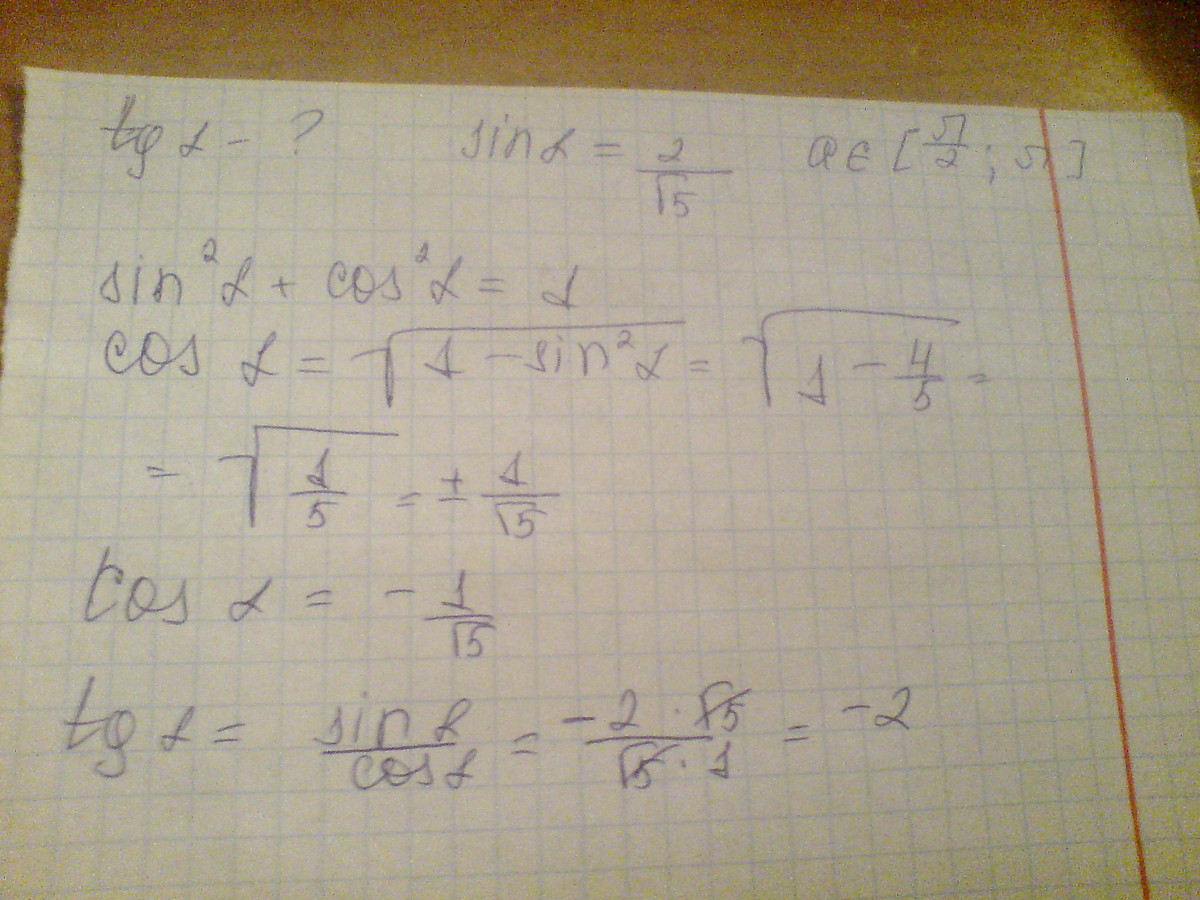 tg α - ? sin α = 2/√5 a ∈ [π/2; π]
sin²α + cos²α = 1
cos α = √(1 - sin²α) = √(1 - 4/5) =
= √(1/5) = ± 1/√5
cos α = - 1/√5
tg α = sin α/cos α = (-2 · √5)/(√5 · 1) = -2